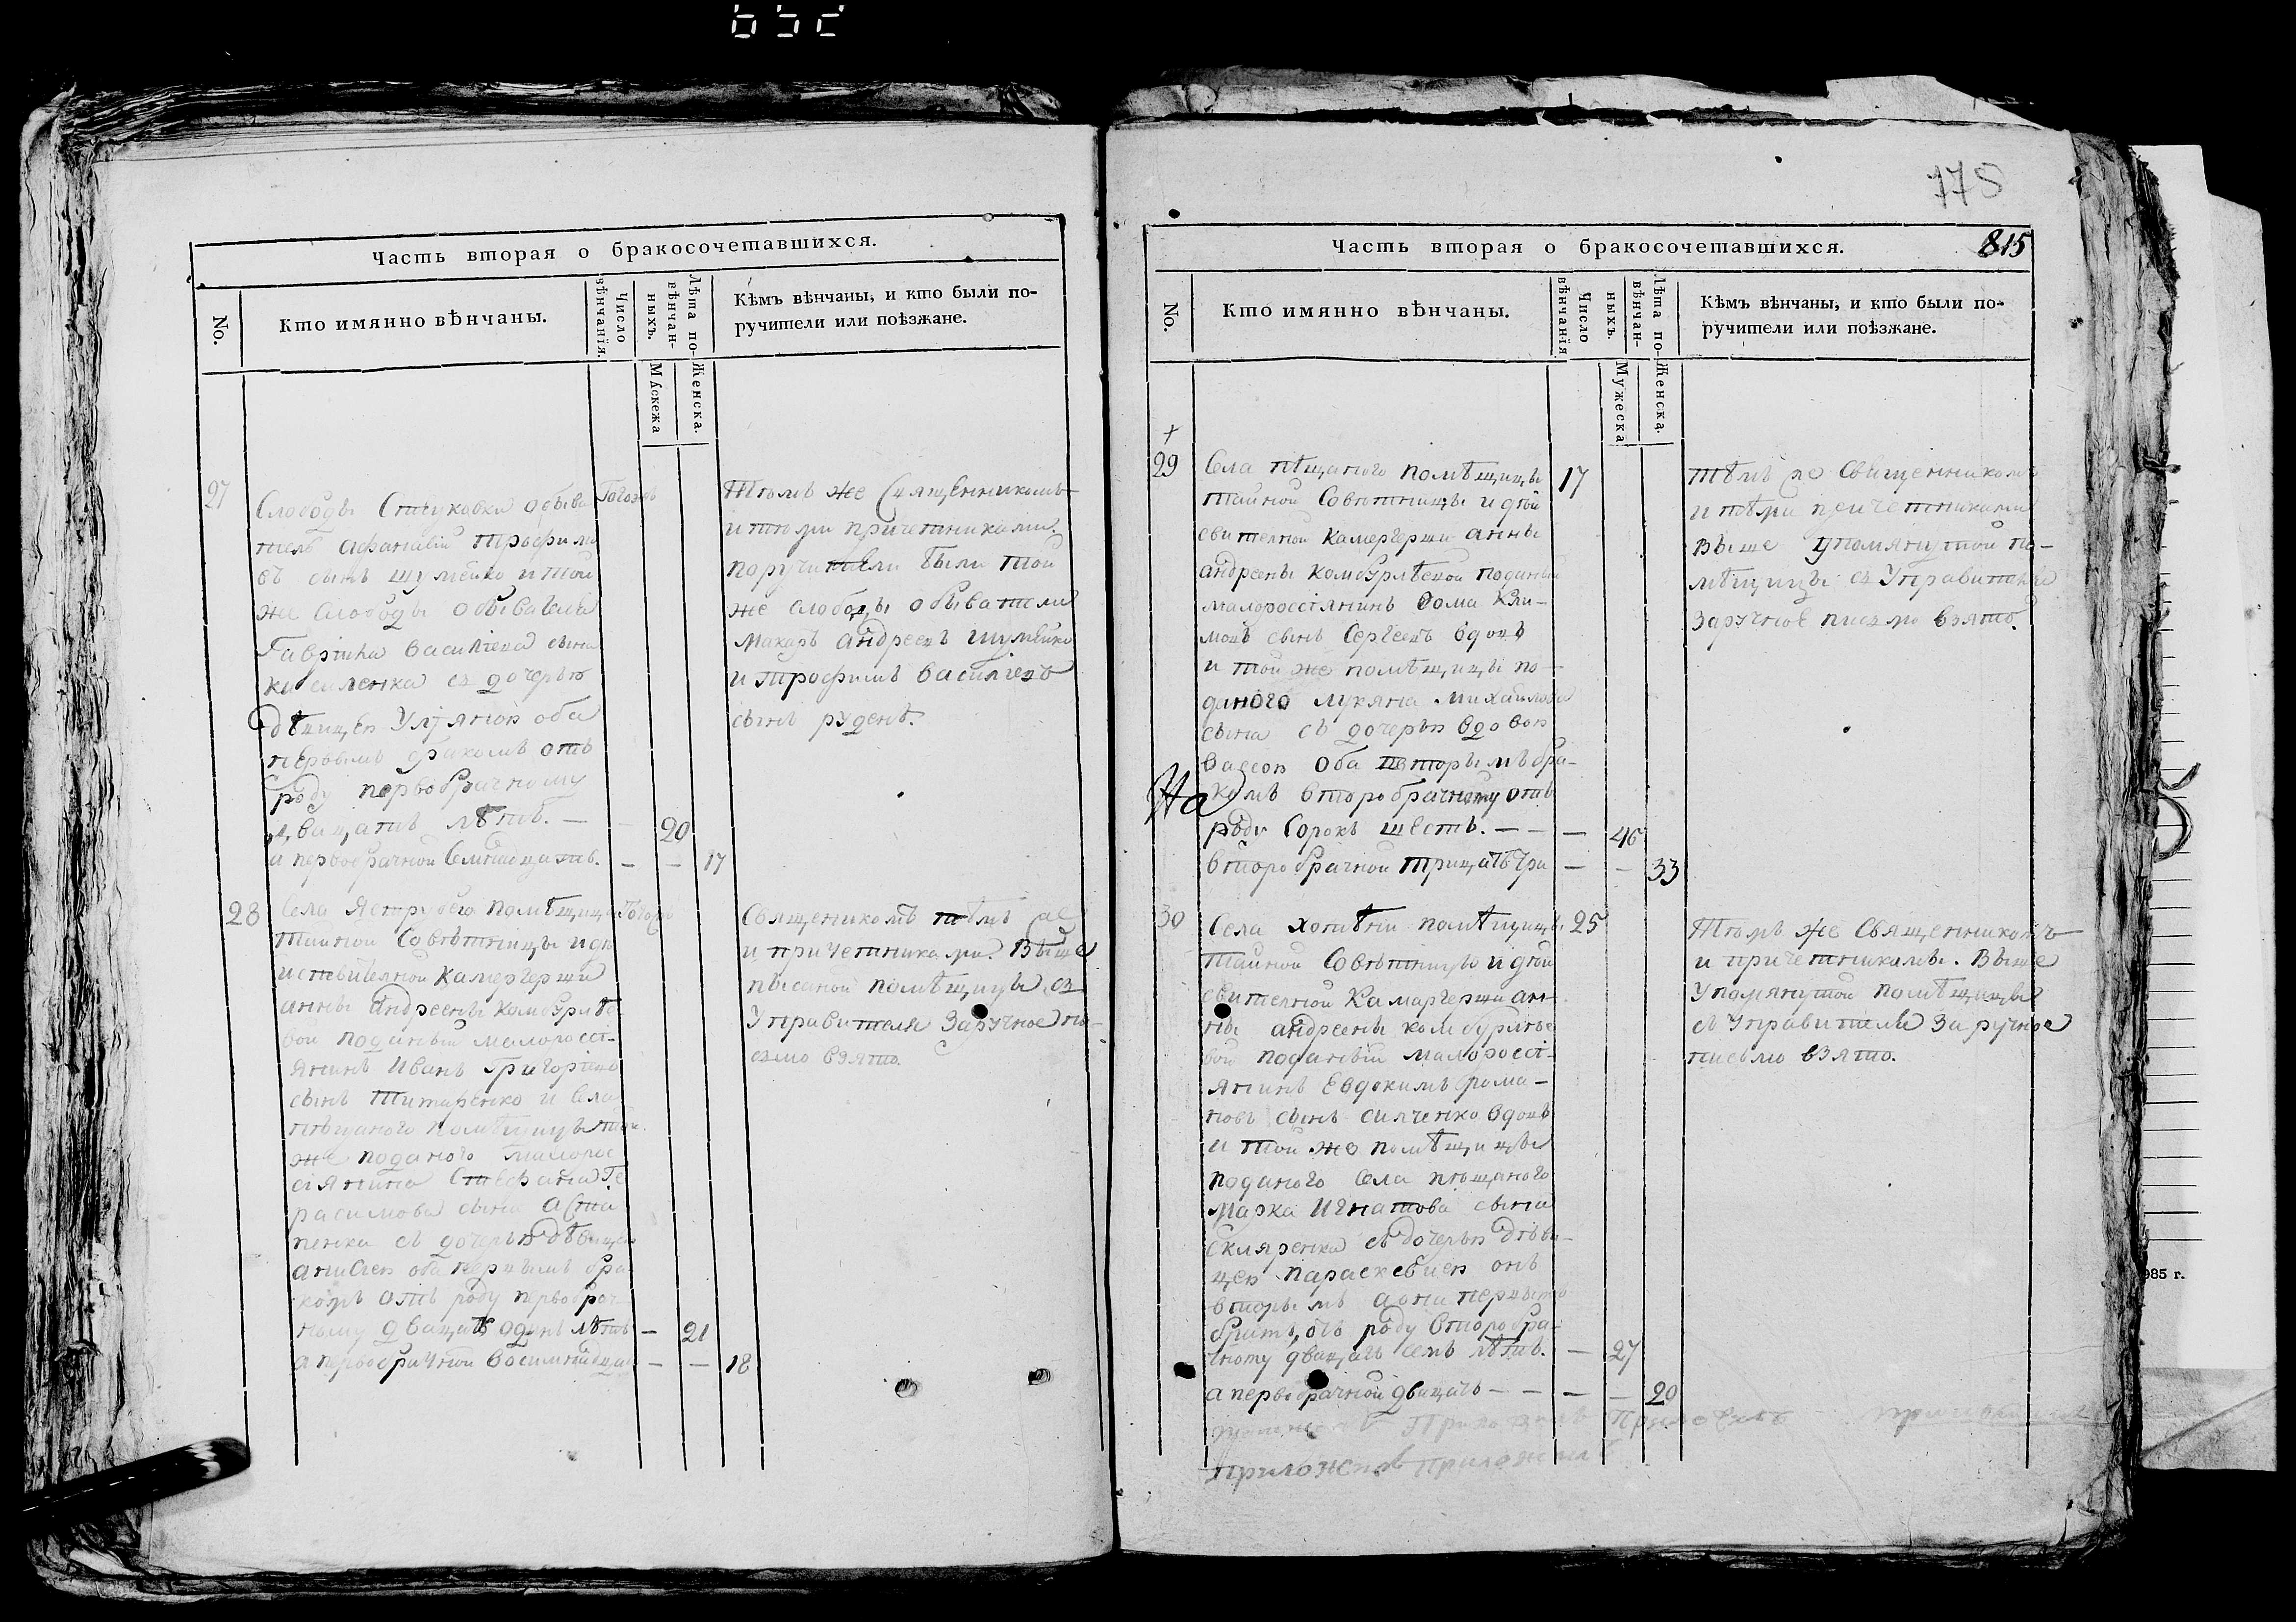 778
Часть вторая о бракосочетавшихся.
No.
Кто имянно вѣнчаны.
Число вѣнчанія.
Лѣта по-
вѣнчан-
ныхъ.
Мужеска
Женска.
Кѣмъ вѣнчаны, и кто были по-
ручители или поѣзжане.
27
Слободы Стецковки обыва
Тогожъ
тель афанасій трофимо
въ сынъ шумейко и той
же слободы обывателя
Гавріила василіева сына
киселенка съ дочерью
дѣвицею Уліяною оба
первымъ бракомъ отъ
роду первобрачному
двацать лѣтъ. — 20
а первобрачной Семнадцать. — — 17
Тѣмъ же Священникомъ
и тѣми причетниками.
поручители были той
же слободы обыватели
макаръ андреевъ шумейко
и трофимъ василіевъ
сынъ руденъ.
28
Села Яструбего помѣщицы
Тогожъ
тайной Совѣтницы и дѣ
иствителной Камергерши
анны андреевны комбурлѣе
вой поданый малоросі-
янинъ Иванъ Григоріевъ
сынъ титаренко и Села
пѣщаного помѣщицы той
же поданого малорос
сіянина Стефана Ге
расимова сына
пенка съ дочерью дѣвицею
анисіею оба первымъ бра
комъ отъ роду первобрач
ному двацать одинъ лѣтъ — 21
а первобрачной восимнадцать — — 18
Священикомъ тѣмъ же
и причетниками. Выше
писаной помѣщицы съ
Управителя Заручное пи-
сьмо взято.
Часть вторая о бракосочетавшихся.
815
No.
Кто имянно вѣнчаны.
Число вѣнчанія
Лѣта по-
вѣнчан-
ныхъ.
Мужеска
Женска.
Кѣмъ вѣнчаны, и кто были по-
ручители или поѣзжане.
+
29
Села пѣщаного помѣщицы 17
тайной Совѣтницы и дѣй
ствителной камергерши анны
андреевны комбурлѣевой поданый
малоросіянинъ Фома Кли-
мовъ сынъ Сергѣевъ вдовъ
и той же помѣщицы по-
даного лукяна михайлова
сына съ дочерью вдовою
васою оба вторымъ бра-
На
комъ второбрачному отъ
роду Сорокъ шесть. — — — 46
второбрачной трицать три — — 33
тѣмъ же Священникомъ
и тѣми причетниками
Выше упомянутой по-
мѣщицы съ Управителя
Заручное писмо взято.
30
Села хотѣни помѣщицы 25
тайной Совѣтницы и дѣй
ствителной Камаргерши ан-
ны андреевны комбурлѣе
вой поданый малоросі-
янинъ Евдокимъ рома-
новъ сынъ силченко вдовъ
и той же помѣщицы
поданого села пѣщаного
марка Игнатова сына
Скляренка съ дочерью дѣви-
цею параскевіею онъ
вторымъ а она первымъ
бракомъ, отъ роду второбра-
чному двацать семъ лѣтъ. — 27
а первобрачной двацать — — — — 20
Тѣмъ же Священникомъ
и причетникамы. Выше
Упомянутой помѣщицы
съ Управителя Заручное
писмо взято.